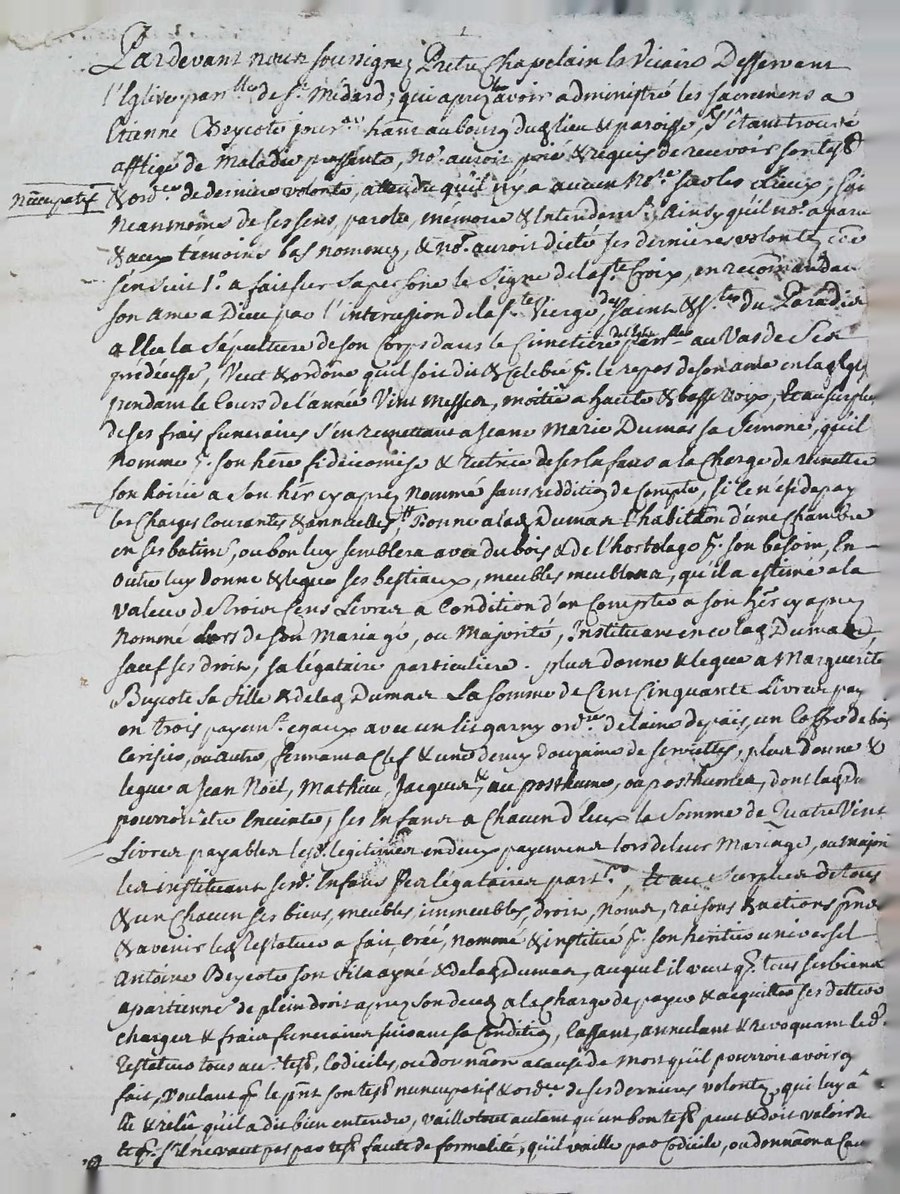 Pardevant nous soussigné Prêtre Chapelain & Vicaire Desservant
l'Eglise par.lle de St. Médard, qui après avoir administré les sacremens a
Etienne Beycote jour.er hant au bourg dud. lieu & paroisse, s'étant trouvé
affligé de Maladie pressente, no.s auroit prié & requis de recevoir son test
nuncupatif
& ord.ce de derniere volonté, attendu qu'il n'y a aucun No.re sur les Lieux; sain
neanmoins de ses sens, parole, mémoire & Entendem.t, Ainsy qu'il no.s a paru
& aux témoins bas nomméz, & no.s auroit dicté ses dernieres volontéz come
s'en suit 1.o a fait sur sa persone le Signe de la s.te Croix, en recomandant
son ame a Dieu par l'intercession de la s.te Vierge, & du Paradis
a Elu la Sépulture de son Corps dans le Cimetiere au Vas de Ses
prédécess, Veut & ordone qu'il soit dit & celebré p.r le repos de son ame en lad. Eglise
pendant le Cours de l'année Vint Messes, moitié a haute & basse voix, Et au surplus
de ses frais funeraires s'en remettant a Jeane Marie Dumas sa femme, qu'il
Nomme p.r son hére fideicomise & rectrice de ses Enfans a la Charge de remettre
son hoirie a son hér cy après Nommé sans reddition de Compte, si ce n'est de pay
les Charges Courantes & annuelles, Donne a lad. Dumas l'habitation d'une Chambre
en ses batim, ou bon luy semblera avec du bois & de l'hortolage p.r son besoin, En
outre luy donne & legue ses bestiaux, meubles meublans, qu'il a estimé a la
valeur de Trois Cens Livres a Condition d'en Compter a son hér cy après
Nommé Lors de son Mariage, ou Majorité, Instituant en ce lad. Dumas
sauf ses droits, sa légataire particuliere. plus donne & legue a Marguerite
Beycote sa fille & de lad. Dumas La Somme de Cent Cinquante Livres pay
en trois payem.s egaux avec un lit garny ord.re de laine de païs, un Coffre de bois
Cerisier, ou autre, fermant a Clef & une demy douzaine de serviettes, plus donne &
legue a Jean Noël, Mathieu, Jacques, & au posthume, ou posthumes, dont lad. Du
pourroit être Enceinte, ses Enfans a Chacun d'Eux la Somme de Quatre Vint
Livres payables lesd. legitimes en deux payemens lors de leur Mariage, ou majori
les instituant sesd. Enfans ses légataires part.res, Et au Surplus de tous
& un Chacun ses biens, meubles immeubles, droits, Noms, raisons & actions pns
& avenir led. Testateur a fait, créé, nommé & institué p.r son héritier universel
Antoine Beycote son fils ayné & de lad. Dumas, auquel il veut q. tous ses biens
apartienne de plein droit après son decez a la charge de payer & acquitter ses dettes
charges & frais funeraires suivant sa Condition, Cassant, annulant & revoquant led.
Testateur tous au.s test, Codiciles, ou donnaôn a cause de Mort qu'il pourroit avoir cy
fait, Voulant q. le pnt son test nuncupatif & ord.ce de ses dernieres volontéz, qui luy a
lû & relû qu'il a dit bien entendre, vaille tout autant qu'un bon test peut & doit valoir de
& q. s'il ne vaut pas par test faute de formalité, qu'il vaille par Codicile, ou donnaôn a Cau